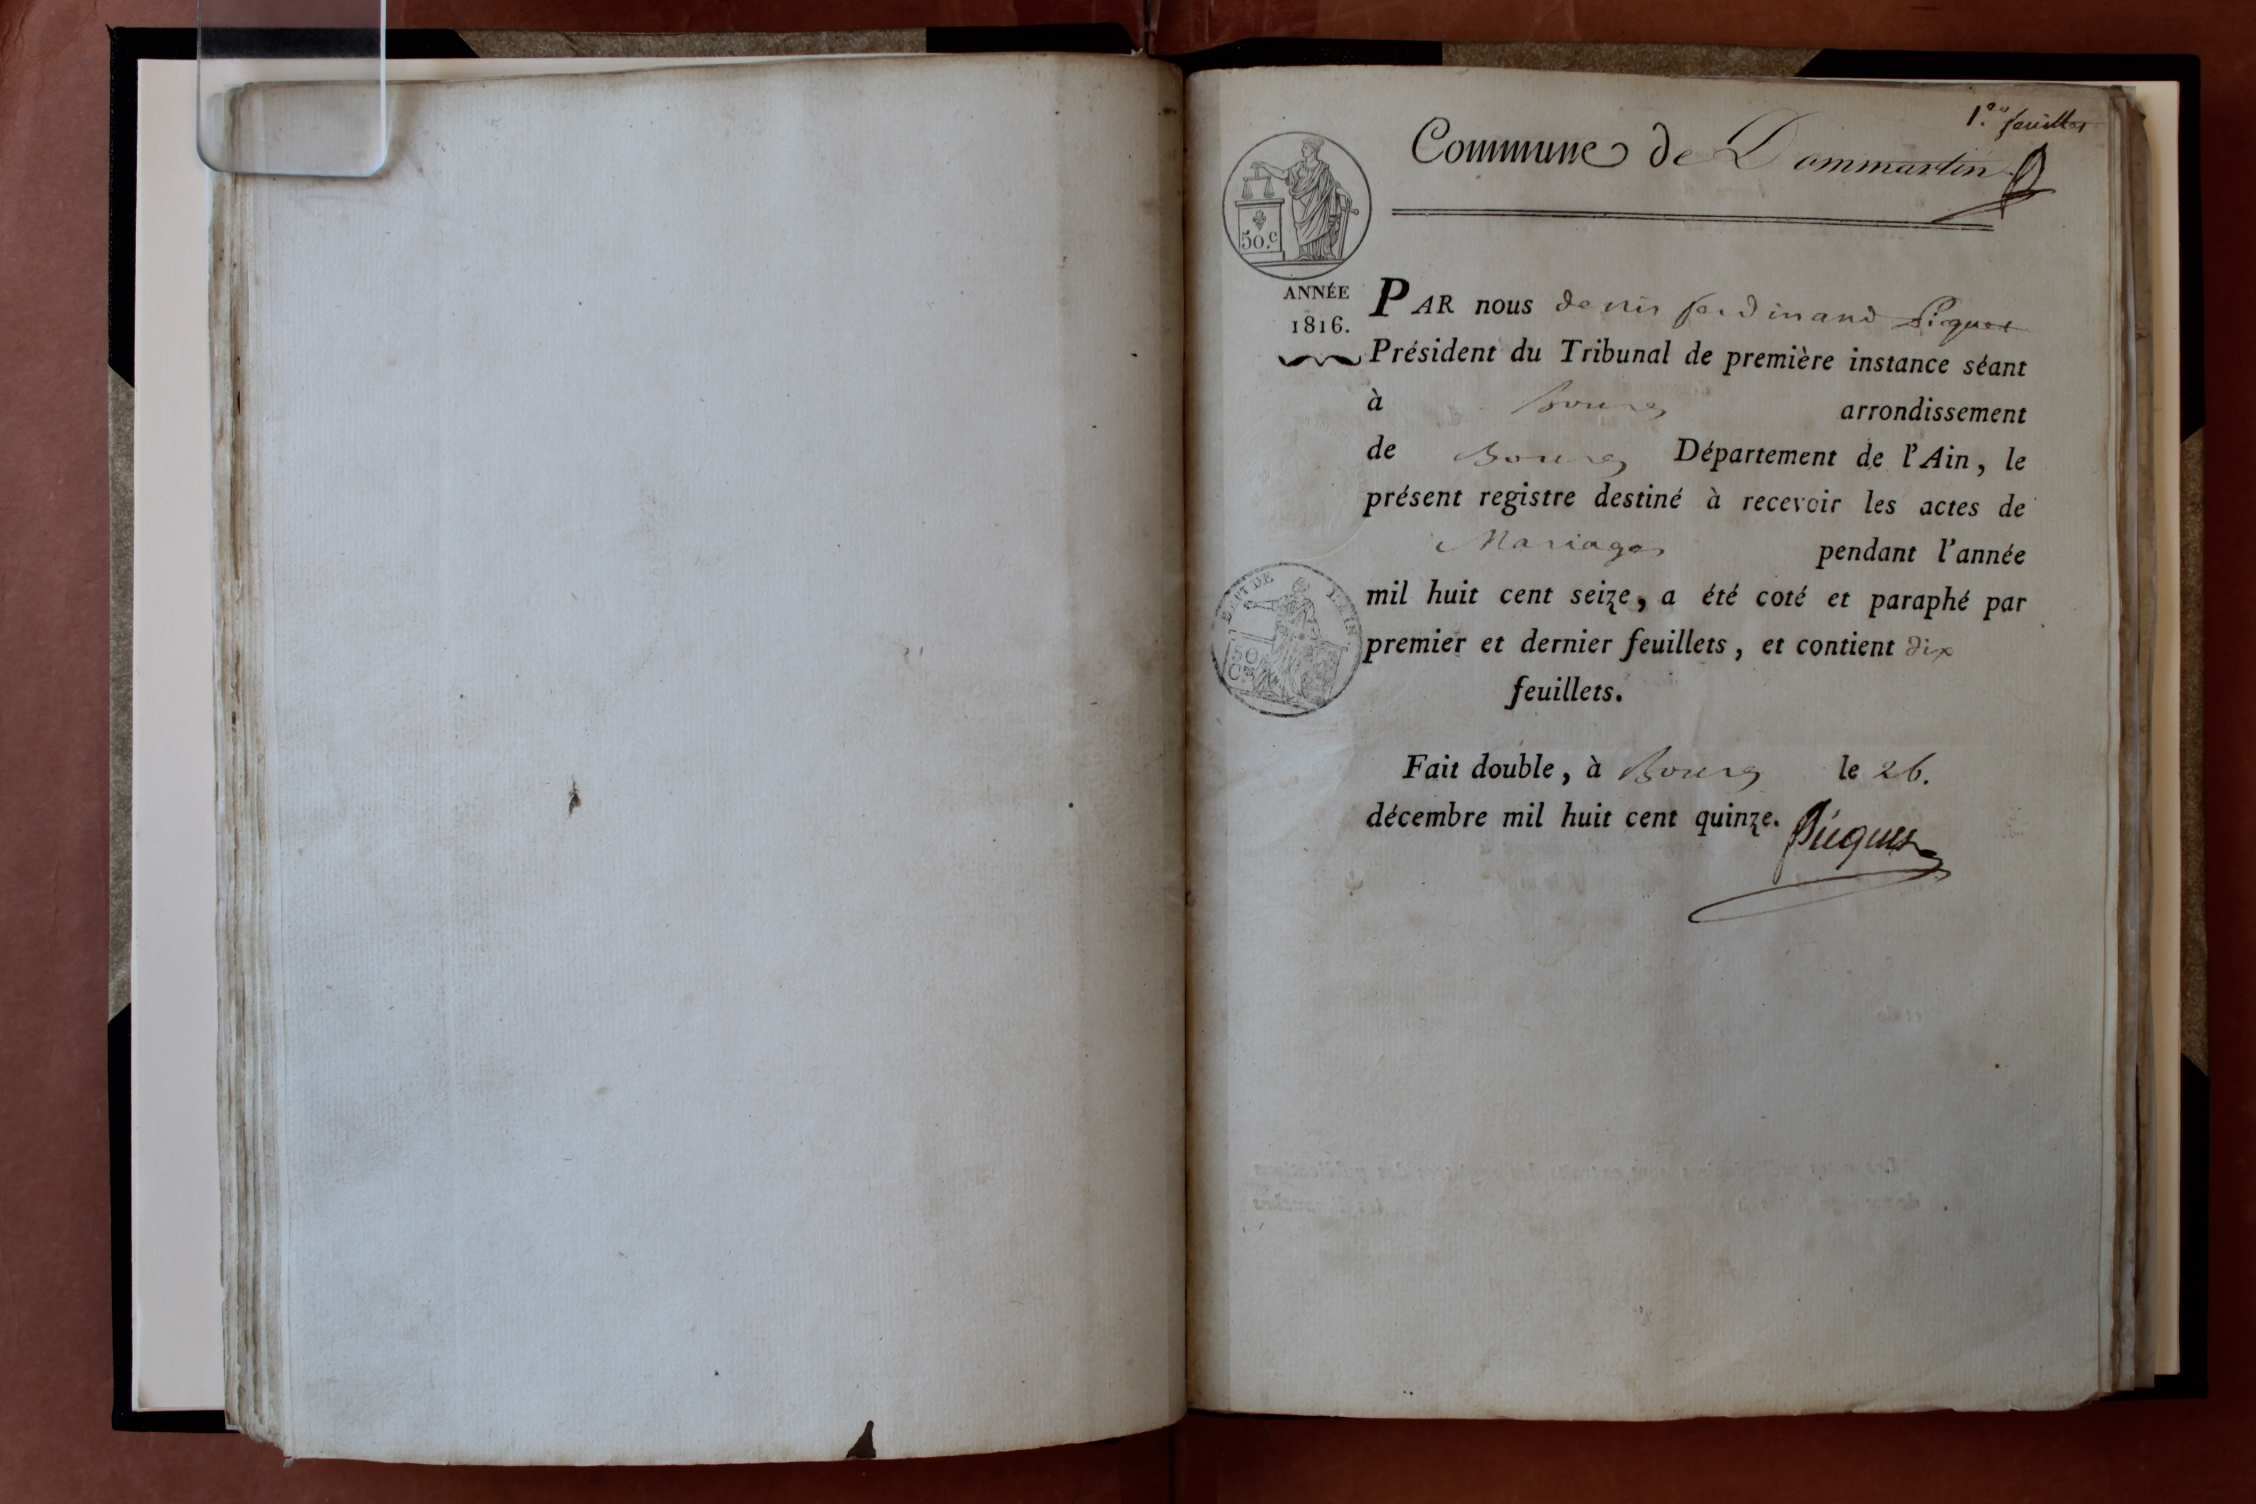 1.er feuillet
Commune de Dommartin
50.c
ANNÉE
1816.
PAR nous denis ferdinand Picquet
Président du Tribunal de première instance séant
à Bourg arrondissement
de Bourg Département de l'Ain, le
présent registre destiné à recevoir les actes de
Mariages pendant l'année
mil huit cent seize, a été coté et paraphé par
premier et dernier feuillets, et contient dix
feuillets.
DE L'AIN
50
C.
Fait double, à Bourg le 26.
décembre mil huit cent quinze.
Picquet